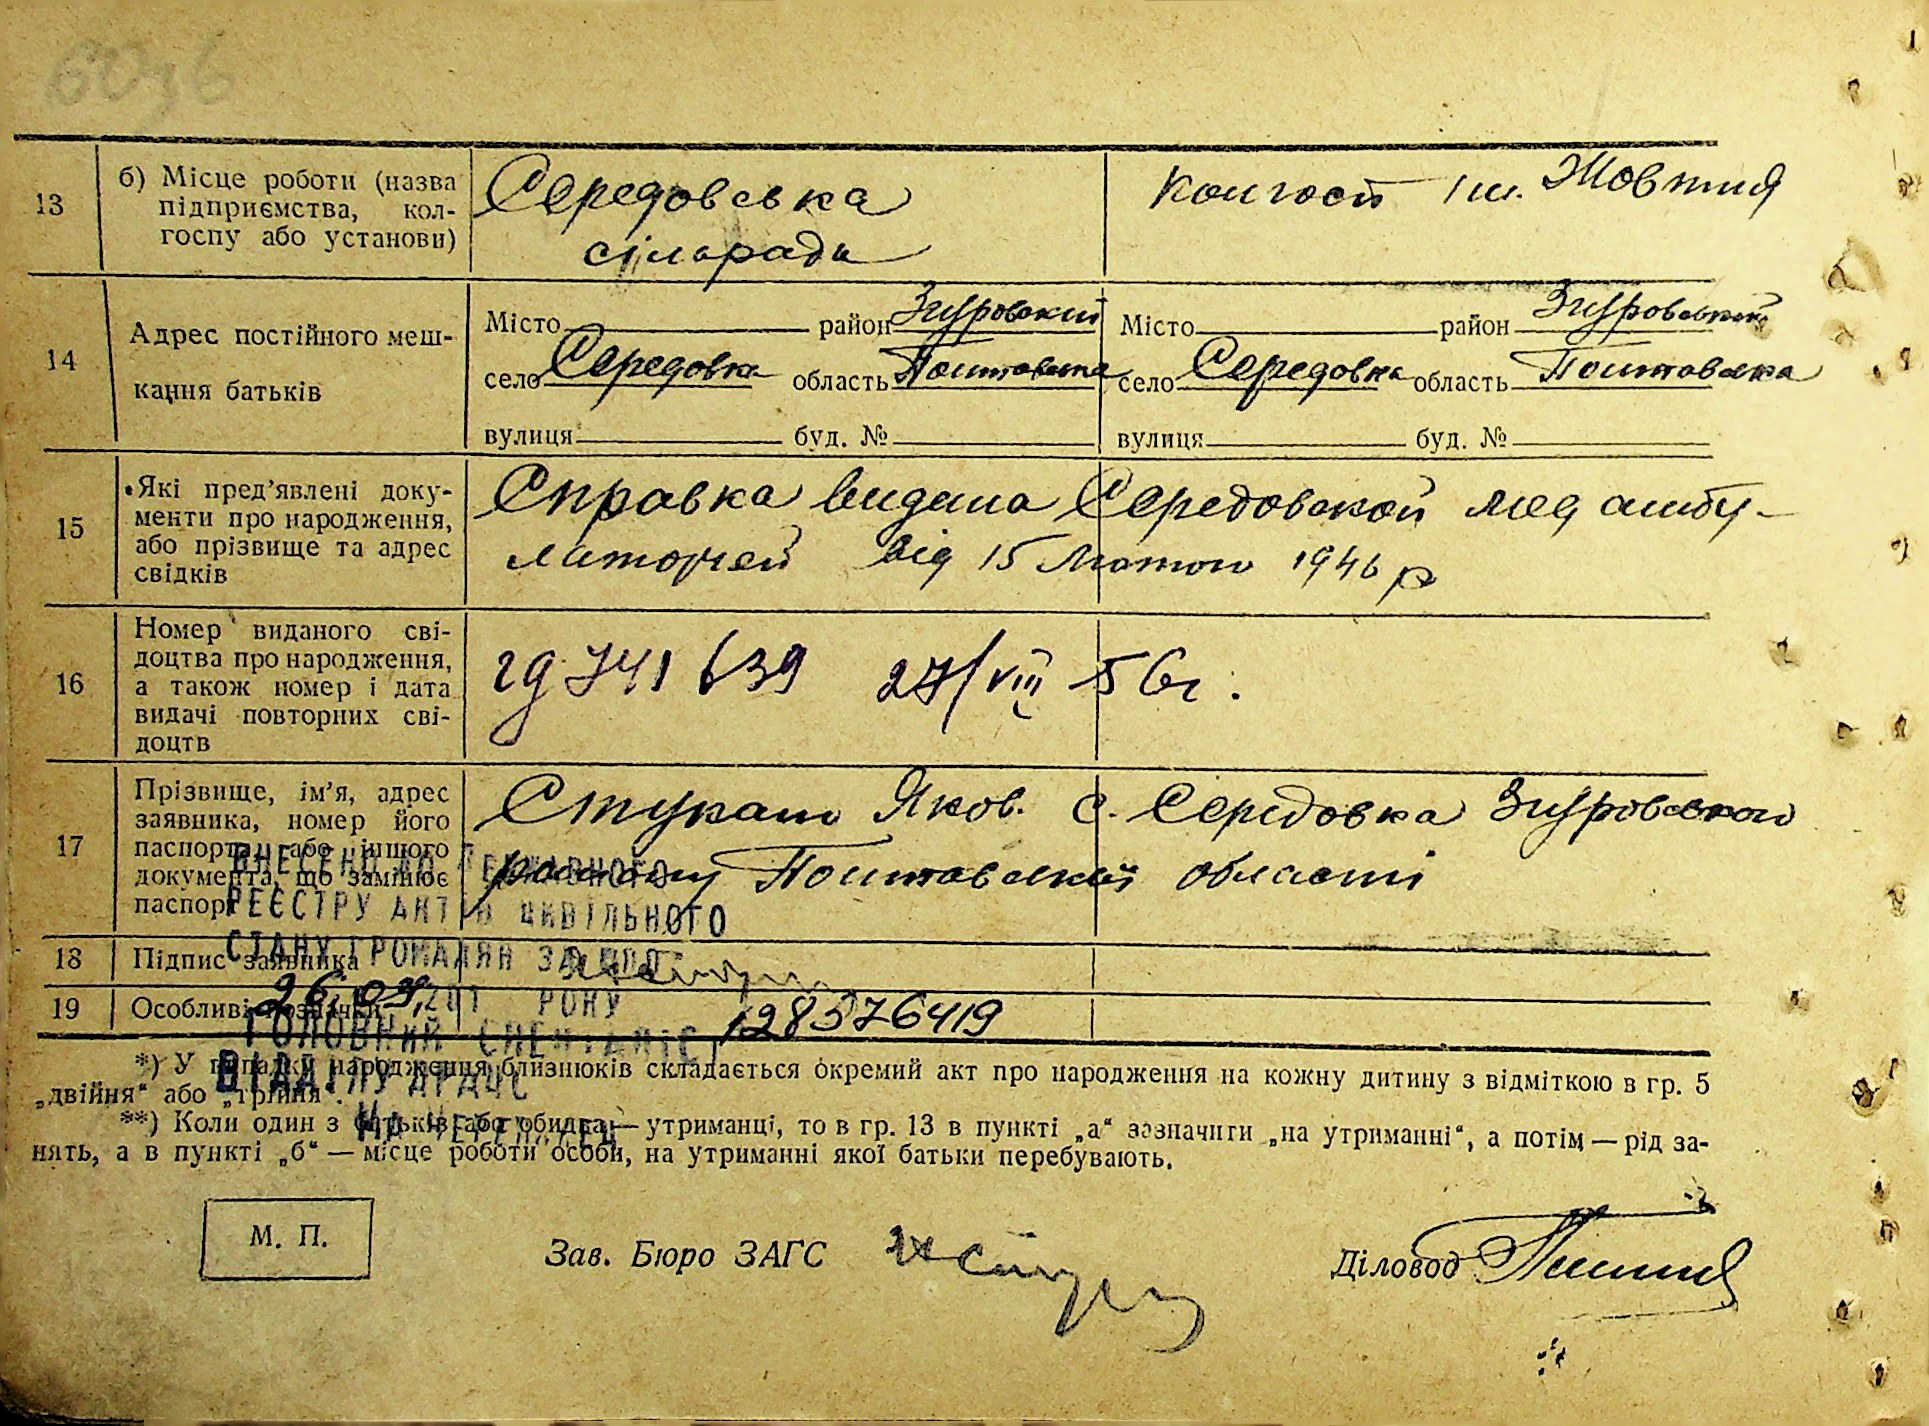 13
б) Місце роботи (назва
підприємства, кол-
госпу або установи)
Середовська
сільрада
Колгосп Ім. Жовтня
14
Адрес постійного меш-
кання батьків
Місто район Згуровский
село Середовка область Полтавська
вулиця буд. №
Місто район Згуровський
село Середовка область Полтавска
вулиця буд. №
15
Які пред’явлені доку-
менти про народження,
або прізвище та адрес
свідків
Справка видана Середовской мед амбу-
латорией від 15 Лютого 1946 р
16
Номер виданого сві-
доцтва про народження,
а також номер і дата
видачі повторних сві-
доцтв
741639 27/VIII 56г.
17
Прізвище, ім’я, адрес
заявника, номер його
паспорта або іншого
документа, що замінює
паспорт
Яков. с. Середовка
району Полтавської області
ВНЕСЕНО ДО ДЕРЖАВНОГО
РЕЄСТРУ АКТІВ ЦИВІЛЬНОГО
СТАНУ ГРОМАДЯН ЗА №
18
Підпис заявника
19
Особливі позначки
26.03. 201 РОКУ
128576419
ГОЛОВНИЙ СПЕЦІАЛІСТ
ВІДДІЛУ ДРАЦС
*) У випадку народження близнюків складається окремий акт про народження на кожну дитину з відміткою в гр. 5
„двійня“ або „трійня“.
**) Коли один з батьків або обидва — утриманці, то в гр. 13 в пункті „а“ зазначити „на утриманні“, а потім — рід за-
нять, а в пункті „б“ — місце роботи особи, на утриманні якої батьки перебувають.
М. П.
Зав. Бюро ЗАГС
Діловод